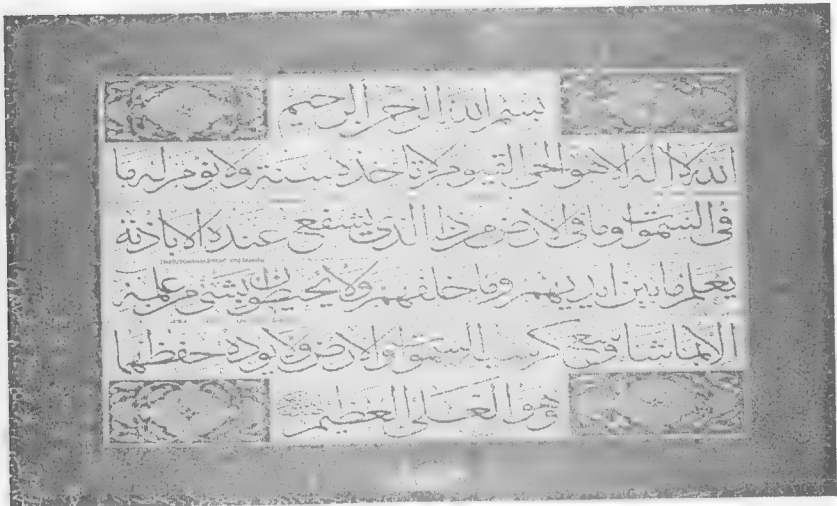 بسم الله الرحمن الرحيم
الله لا اله الا هو الحي القيوم لا تاخذه سنة ولا نوم له ما
في السموات وما في الارض من ذا الذي يشفع عنده الا باذنه
يعلم ما بين ايديهم وما خلفهم ولا يحيطون بشئ من علمه
الا بما شا وسع كرسيه السموات والارض ولا يوده حفظهما
وهو العلي العظيم